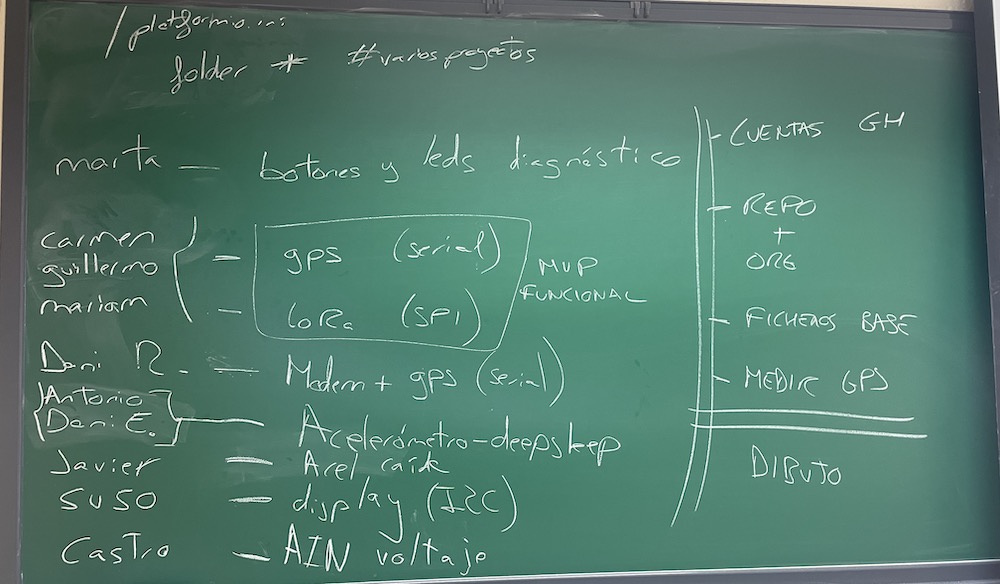 /platformio.ini
folder * #varios proyectos
marta — botones y leds diagnóstico
carmen
guillermo
mariam
- gps (serial)
- LoRa (SPI)
MVP
FUNCIONAL
Dani R. — Modem + gps (serial)
Antonio
Dani E. — Acelerómetro-deepsleep
Javier — Acel caída
SUSO — display (I2C)
Castro — AIN voltaje
- CUENTAS GH
- REPO
+
ORG
- FICHEROS BASE
- MEDIR GPS
DIBUJO